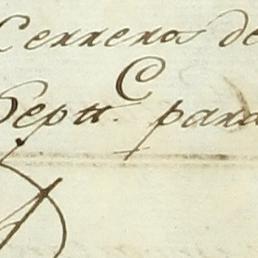 Cerreros de
C
Septe. para